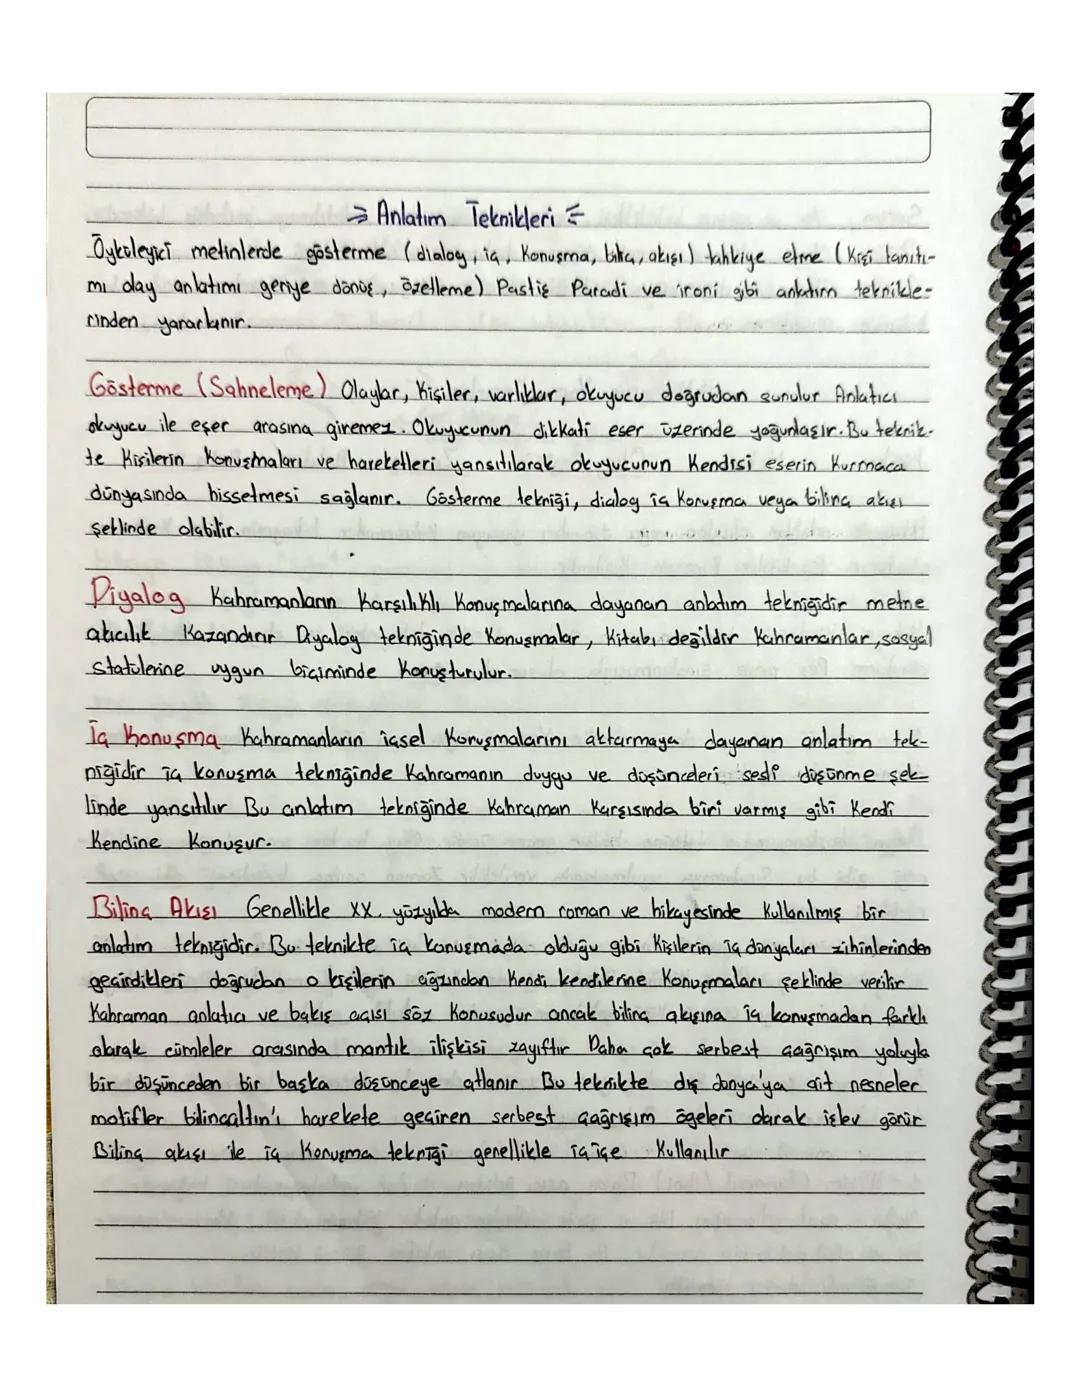 → Anlatım Teknikleri ←
Öyküleyici metinlerde gösterme (dialog, iç, Konuşma, bilinç, akışı) tahkiye etme (Kişi tanıtı-
mı olay anlatımı geriye dönüş, özetleme) Pastiş Paradi ve ironi gibi anlatım teknikle-
rinden yararlanır.
Gösterme (Sahneleme) Olaylar, Kişiler, varlıklar, okuyucu doğrudan sunulur Anlatıcı
okuyucu ile eşer arasına giremez. Okuyucunun dikkati eser üzerinde yoğunlaşır. Bu teknik-
te Kişilerin Konuşmaları ve hareketleri yansıtılarak okuyucunun Kendisi eserin Kurmaca
dünyasında hissetmesi sağlanır. Gösterme tekniği, dialog iç Konuşma veya bilinç akışı
şeklinde olabilir.
Diyalog Kahramanların Karşılıklı Konuşmalarına dayanan anlatım tekniğidir metne
akıcılık Kazandırır Diyalog tekniğinde Konuşmalar, Kitabı değildir Kahramanlar, sosyal
Statülerine uygun biçiminde Konuşturulur.
İç Konuşma Kahramanların içsel Konuşmalarını aktarmaya dayanan anlatım tek-
niğidir iç konuşma tekniğinde Kahramanın duygu ve düşünceleri sesli düşünme şek-
linde yansıtılır Bu anlatım tekniğinde Kahraman Karşısında biri varmış gibi Kendi
Kendine Konuşur.
Bilinç Akışı Genellikle XX. yüzyılda modern roman ve hikayesinde Kullanılmış bir
anlatım tekniğidir. Bu teknikte iç konuşmada olduğu gibi Kişilerin iç dünyaları zihinlerinden
geçirdikleri doğrudan o kişilerin ağzından Kendi kendilerine Konuşmaları şeklinde verilir
Kahraman anlatıcı ve bakış açısı söz Konusudur ancak bilinç akışına iç konuşmadan farklı
olarak cümleler arasında mantık ilişkisi zayıftır Daha çok serbest çağrışım yoluyla
bir düşünceden bir başka düşünceye atlanır Bu teknikte dış dünya'ya ait nesneler
motifler bilinçaltın'ı harekete geçiren serbest çağrışım ögeleri olarak işlev görür
Bilinç akışı ile iç Konuşma tekniği genellikle iç içe Kullanılır